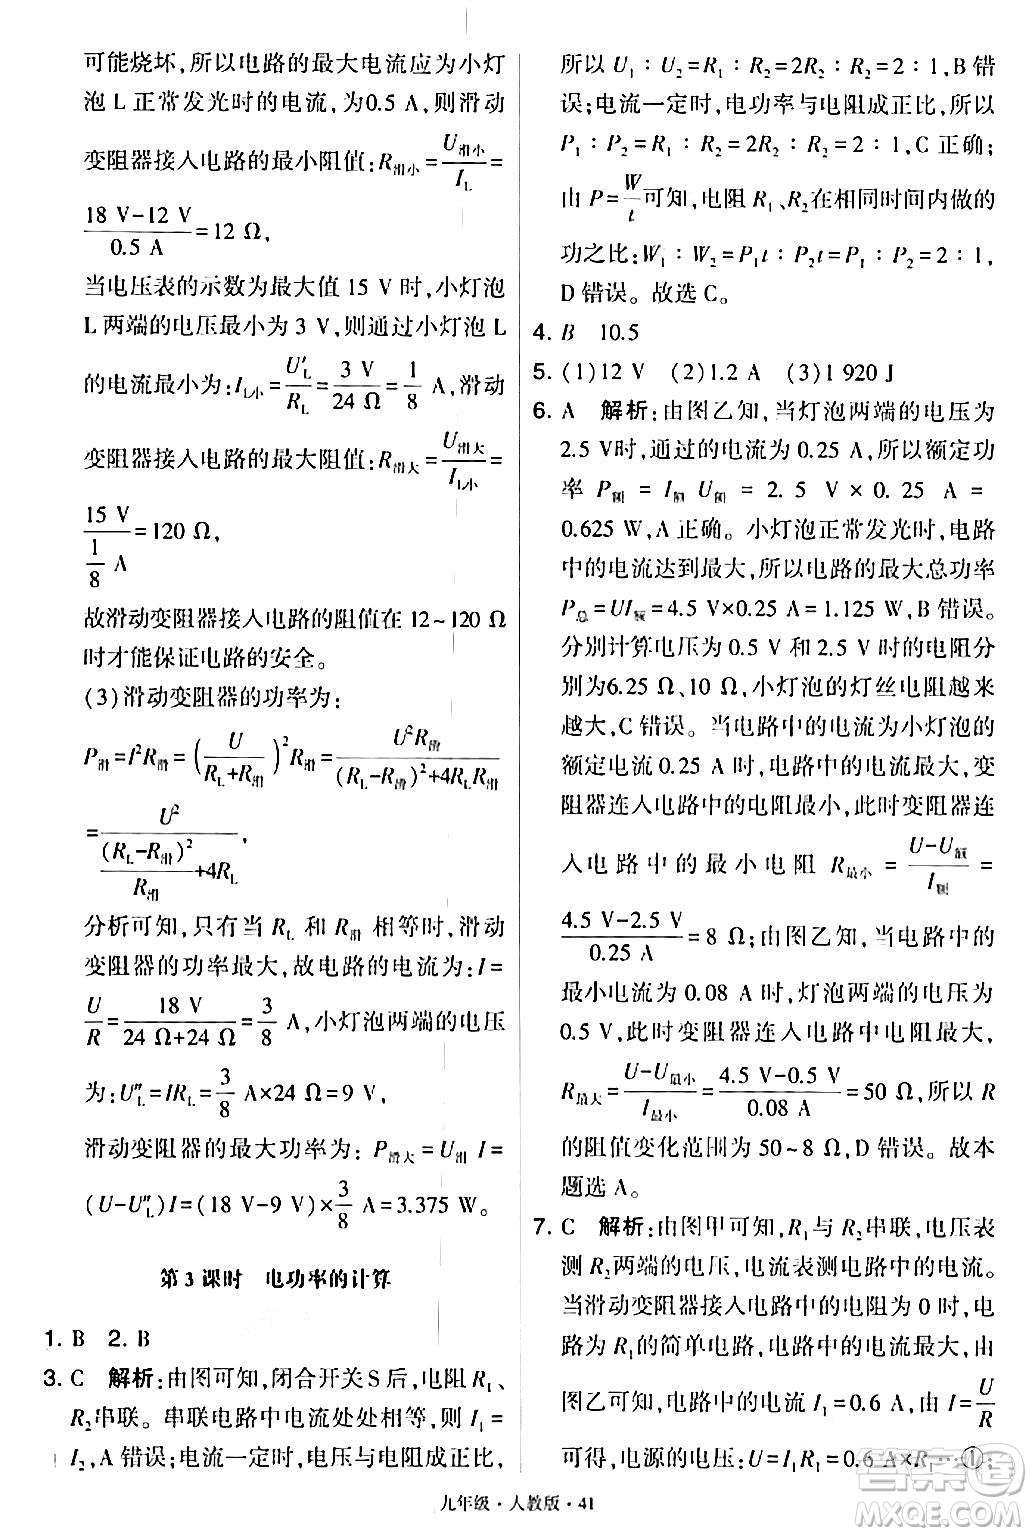 可能烧坏,所以电路的最大电流应为小灯
泡 L 正常发光时的电流,为0.5 A,则滑动
变阻器接入电路的最小阻值:R滑小=U滑小/I_L=
(18 V-12 V)/0.5 A=12 Ω,
当电压表的示数为最大值 15 V 时,小灯泡
L 两端的电压最小为 3 V,则通过小灯泡 L
的电流最小为:I_L小=U′_L/R_L=3 V/24 Ω=1/8 A,滑动
变阻器接入电路的最大阻值:R滑大=U滑大/I_L小=
15 V/(1/8 A)=120 Ω,
故滑动变阻器接入电路的阻值在 12~120 Ω
时才能保证电路的安全。
(3)滑动变阻器的功率为:
P滑=I²R滑=(U/(R_L+R滑))²R滑=U²R滑/((R_L-R滑)²+4R_LR滑)
=U²/((R_L-R滑)²/R滑+4R_L),
分析可知,只有当 R_L 和 R滑 相等时,滑动
变阻器的功率最大,故电路的电流为:I=
U/R=18 V/(24 Ω+24 Ω)=3/8 A,小灯泡两端的电压
为:U″_L=IR_L=3/8 A×24 Ω=9 V,
滑动变阻器的最大功率为:P滑大=U滑 I=
(U-U″_L)I=(18 V-9 V)×3/8 A=3.375 W。
第 3 课时 电功率的计算
1. B 2. B
3. C 解析:由图可知,闭合开关S后,电阻 R₁、
R₂串联。串联电路中电流处处相等,则 I₁=
I₂,A 错误;电流一定时,电压与电阻成正比,
所以 U₁∶U₂=R₁∶R₂=2R₂∶R₂=2∶1,B 错
误;电流一定时,电功率与电阻成正比,所以
P₁∶P₂=R₁∶R₂=2R₂∶R₂=2∶1,C 正确;
由 P=W/t可知,电阻 R₁、R₂在相同时间内做的
功之比:W₁∶W₂=P₁t∶P₂t=P₁∶P₂=2∶1,
D 错误。故选 C。
4. B 10.5
5. (1)12 V (2)1.2 A (3)1 920 J
6. A 解析:由图乙知,当灯泡两端的电压为
2.5 V时,通过的电流为 0.25 A,所以额定功
率 P额 = I额 U额 = 2.5 V × 0.25 A =
0.625 W,A 正确。小灯泡正常发光时,电路
中的电流达到最大,所以电路的最大总功率
P总=UI额=4.5 V×0.25 A=1.125 W,B 错误。
分别计算电压为 0.5 V 和 2.5 V 时的电阻分
别为6.25 Ω、10 Ω,小灯泡的灯丝电阻越来
越大,C 错误。当电路中的电流为小灯泡的
额定电流 0.25 A 时,电路中的电流最大,变
阻器连入电路中的电阻最小,此时变阻器连
入电路中的最小电阻 R最小 = (U-U额)/I额 =
(4.5 V-2.5 V)/0.25 A=8 Ω;由图乙知,当电路中的
最小电流为 0.08 A 时,灯泡两端的电压为
0.5 V,此时变阻器连入电路中电阻最大,
R最大=(U-U最小)/I最小=(4.5 V-0.5 V)/0.08 A=50 Ω,所以 R
的阻值变化范围为 50~8 Ω,D 错误。故本
题选 A。
7. C 解析:由图甲可知,R₁与 R₂串联,电压表
测 R₂两端的电压,电流表测电路中的电流。
当滑动变阻器接入电路中的电阻为 0 时,电
路为 R₁的简单电路,电路中的电流最大,由
图乙可知,电路中的电流 I₁=0.6 A,由 I=U/R
可得,电源的电压:U=I₁R₁=0.6 A×R₁…①;
九年级·人教版·41
答案圈
MXQE.COM